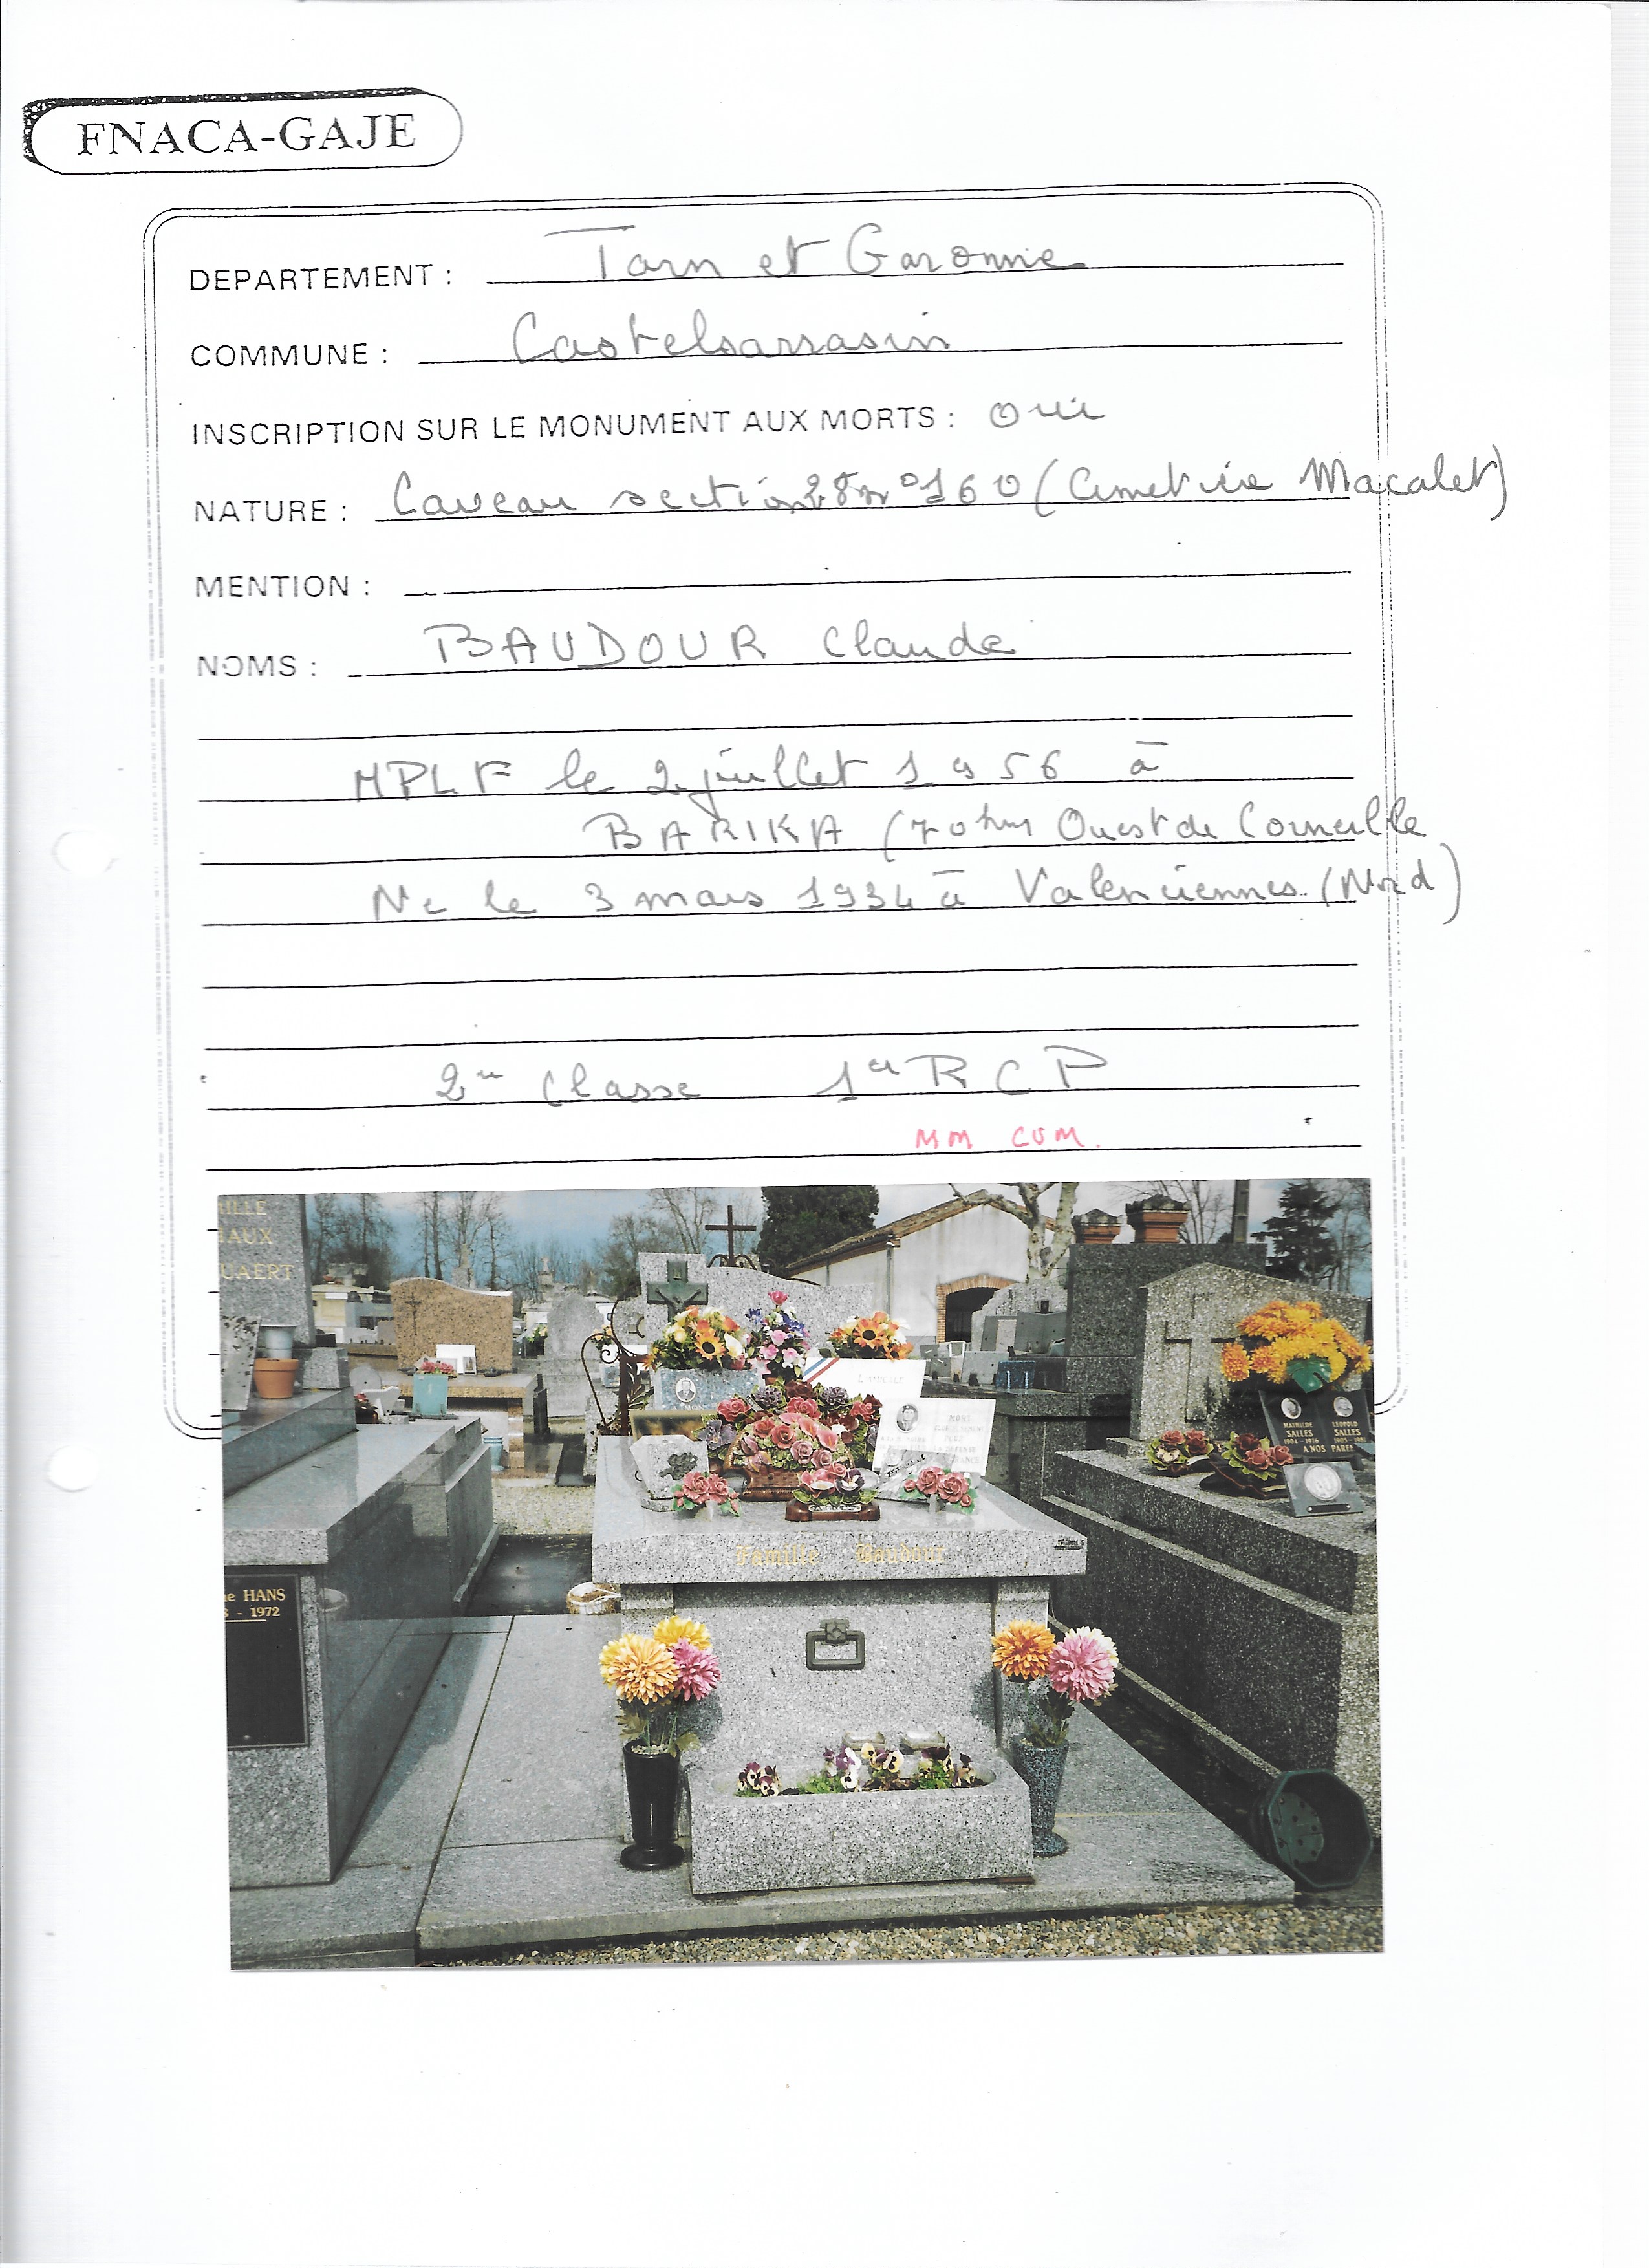 FNACA-GAJE
DEPARTEMENT : Tarn et Garonne
COMMUNE : Castelsarrasin
INSCRIPTION SUR LE MONUMENT AUX MORTS : oui
NATURE : Caveau section 28 n° 160 (Cimetière Macalet)
MENTION :
NOMS : BAUDOUR Claude
MPLF le 2 juillet 1956 à
BARIKA (70 kms Ouest de Corneille
Né le 3 mars 1934 à Valenciennes (Nord)
2me Classe 1er RCP
MM COM.
ILLE
AUX
UAERT
MATHILDE SALLES
LEOPOLD SALLES
A NOS
Famille Baudour
e HANS
- 1972